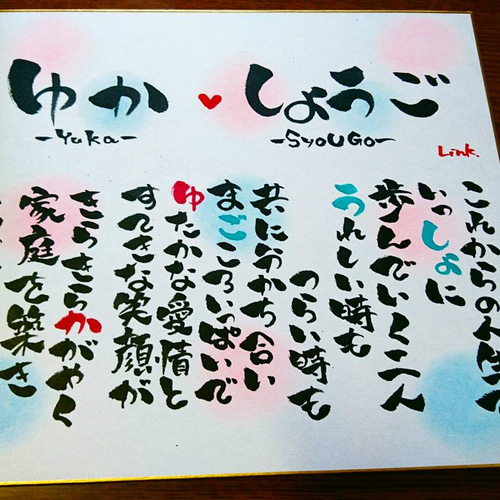 ゆか ♥ しょうご
-Yuka- -SyoUGo-
Link.
これからの人生
いっしょに
歩んでいく二人
うれしい時も
つらい時も
共に分かち合い
まごころいっぱいで
ゆたかな愛情と
すてきな笑顔が
きらきらかがやく
家庭を築き